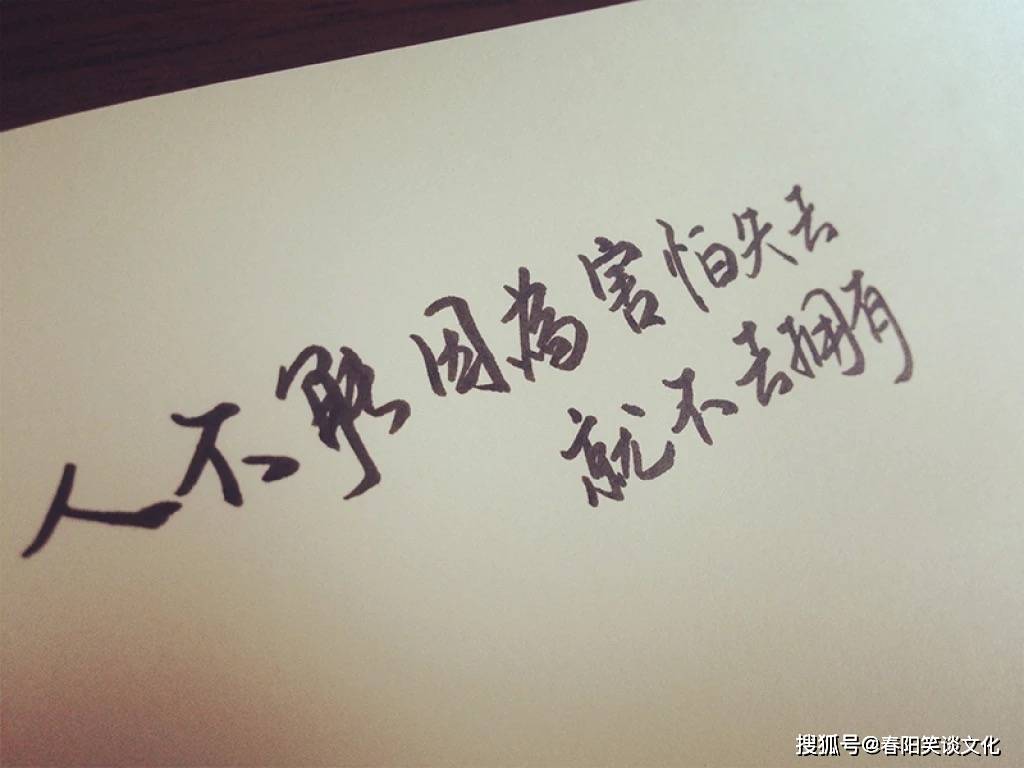 人不能因為害怕失去
就不去拥有
搜狐号@春阳笑谈文化